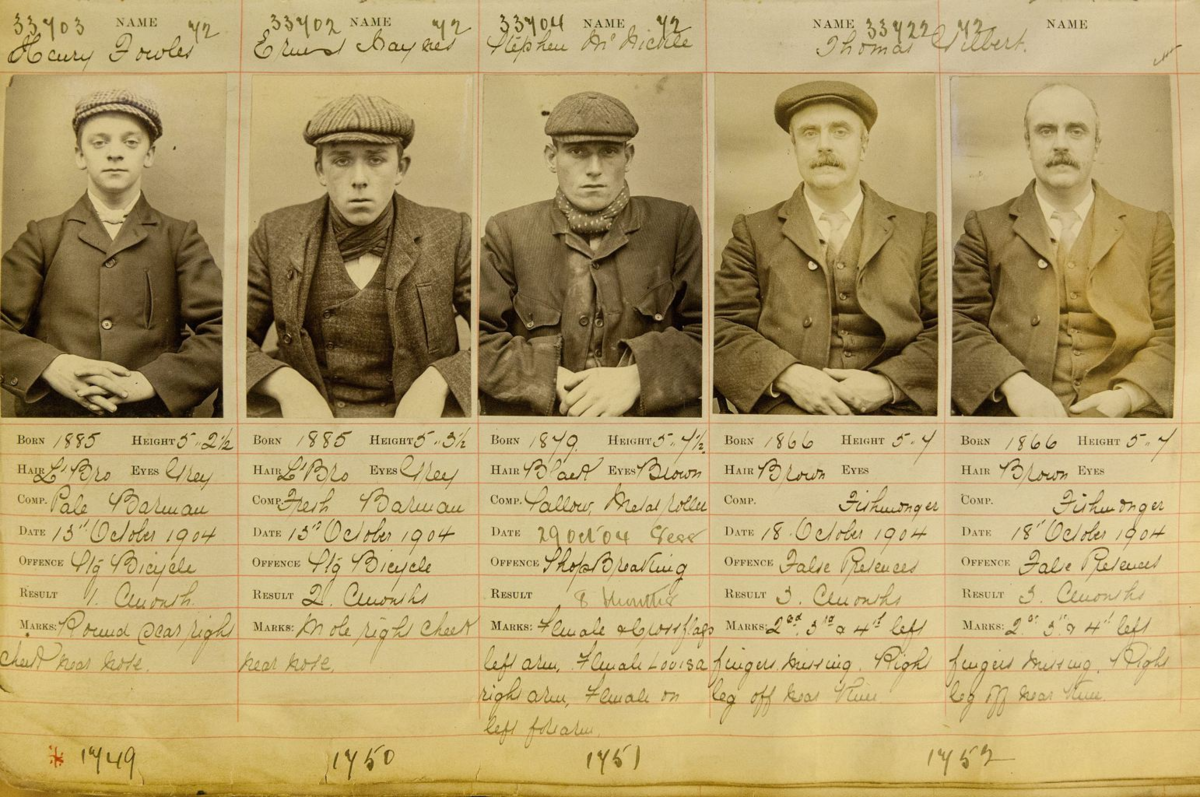 33703 NAME 72
Henry Fowler
Born 1885 Height 5.. 2½
Hair Lt Bro Eyes Grey
Comp. Pale Barman
Date 13th October 1904
Offence Stg Bicycle
Result 1. Cmonth
Marks: Round scar right
cheek near nose.
1749
33702 NAME 72
Ernest Haynes
Born 1885 Height 5.. 3½
Hair Lt Bro Eyes Grey
Comp. Fresh Barman
Date 13th October 1904
Offence Stg Bicycle
Result 2. Cmonths
Marks: Mole right cheek
near nose.
1750
33704 NAME 72
Stephen
Born 1879. Height 5.. 7½
Hair Black Eyes Brown
Comp. Sallow, Metal roller
Date 29 Oct 04 Sess
Offence Shop Breaking
Result 8 months
Marks: Female & Crossflags
left arm, Female Louisa
right arm, Female on
left forearm.
1751
NAME 33722 72 NAME
Thomas Gilbert.
Born 1866 Height 5.. 7
Hair Brown Eyes
Comp. Fishmonger
Date 18. October 1904
Offence False Pretences
Result 3. Cmonths
Marks: 2nd 3rd & 4th left
fingers missing. Right
leg off near knee
Born 1866 Height 5.. 7
Hair Brown Eyes
Comp. Fishmonger
Date 18th October 1904
Offence False Pretences
Result 3. Cmonths
Marks: 2nd 3rd & 4th left
fingers missing. Right
leg off near knee.
1752